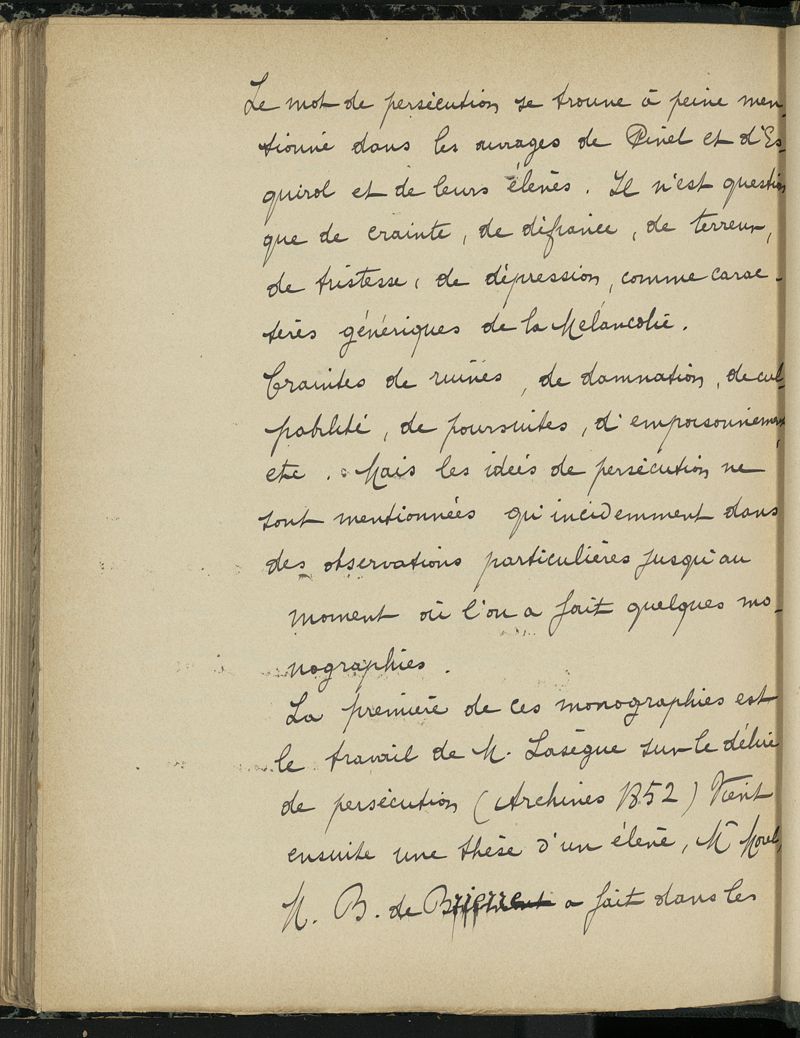 Le mot de persécution se trouve à peine men-
tionné dans les ouvrages de Pinel et d'Es-
quirol et de leurs élèves. Il n'est question
que de crainte, de défiance, de terreur,
de tristesse, de dépression, comme carac-
tères génériques de la Mélancolie.
Craintes de ruines, de damnation, de cul-
pabilité, de poursuites, d'empoisonnement,
etc. Mais les idées de persécution ne
sont mentionnées qu'incidemment dans
des observations particulières jusqu'au
moment où l'on a fait quelques mo-
nographies.
La première de ces monographies est
le travail de M. Lasègue sur le délire
de persécution (Archives 1852) Vient
ensuite une thèse d'un élève, Mr Morel,
M. B. de a fait dans les